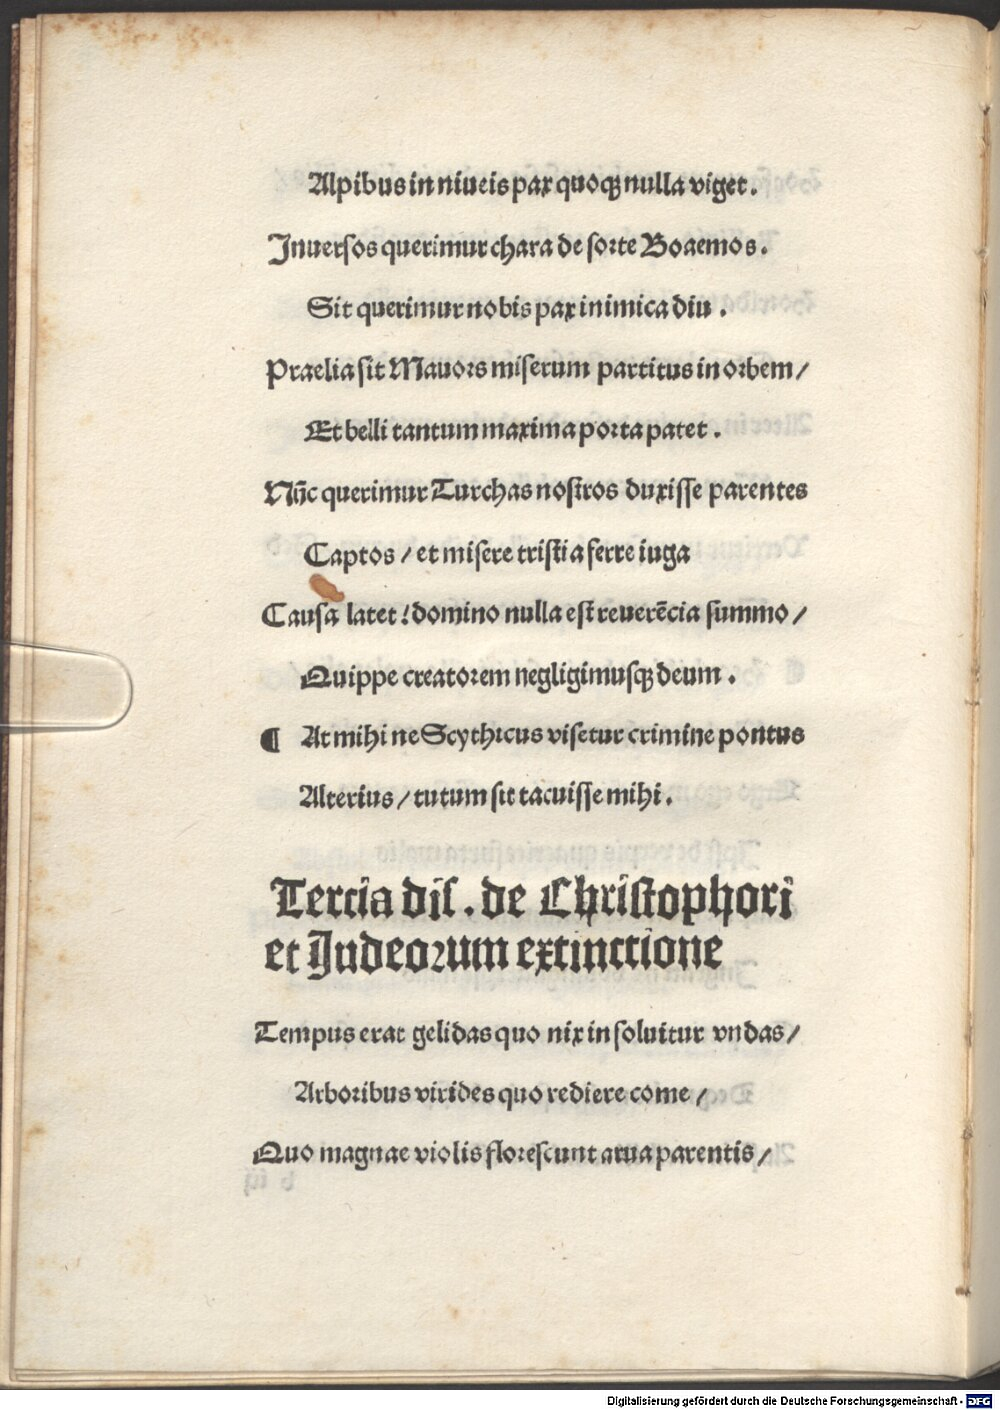 Alpibus in niueis pax quoqꝫ nulla viget.
Inuersos querimur chara de sorte Boaemos.
Sit querimur nobis pax inimica diu.
Praelia sit Mauors miserum partitus in orbem/
Et belli tantum maxima porta patet.
Nūc querimur Turchas nostros duxisse parentes
Captos/ et misere tristia ferre iuga
Causa latet! domino nulla est reuerēcia summo/
Quippe creatorem negligimusqꝫ deum.
¶ At mihi ne Scythicus visetur crimine pontus
Alterius/ tutum sit tacuisse mihi.
Tercia dis. de Christophori
et Judeorum extinctione
Tempus erat gelidas quo nix in soluitur vndas/
Arboribus virides quo rediere come/
Quo magnae violis florescunt arua parentis/
Digitalisierung gefördert durch die Deutsche Forschungsgemeinschaft - DFG